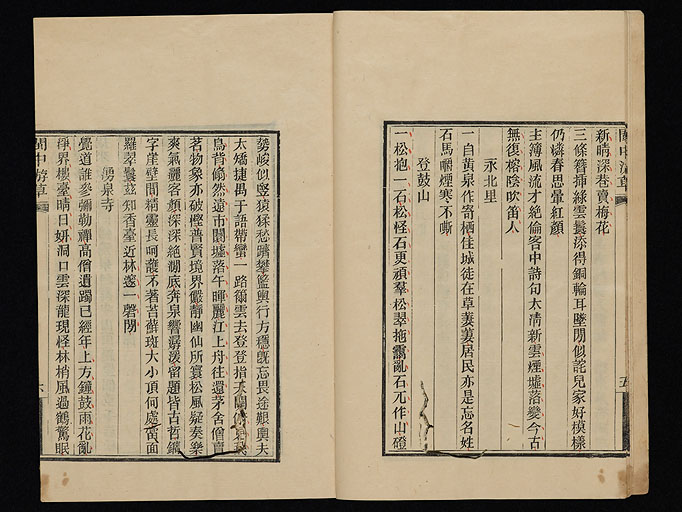 閩中游草
五
新晴深巷賣梅花
三條簪揷綠雲鬟添得銅輪耳墜閒似詫兒家好模樣
仍憐春思暈紅顏
主簿風流才絶倫客中詩句太清新雲煙墟落變今古
無復榕陰吹笛人
永北里
一自黃泉作寄棲住城徒在草萋萋居民亦是忘名姓
石馬嚼煙寒不嘶
登鼓山
一松抱一石松怪石更頑羣松翠拖靄亂石元作山磴
勢峻似豎猿猱愁躋攀籃輿行方穩旣忘畏途艱輿夫
太矯捷禺于語帶蠻一路篛雲去登登指天關
鳥背翛然遠市闤墟落午暉麗江上舟往還茅舍僧
茗物象亦破慳普賢境界儼靜幽仙所寰松風疑奏樂
爽氣灑客顏深深絶澗底奔泉響潺湲留題皆古哲鐫
字崖壁間精靈長呵護不著苔蘚斑大小頂何處當面
羅翠鬟玆知香臺近林邃一磬閒
湧泉寺
覺道誰參彌勒禪高僧遺躅已經年上方鐘鼓雨花亂
淨界樓臺晴日妍洞口雲深龍現怪林梢風過鶴驚眠
閩中游草
六